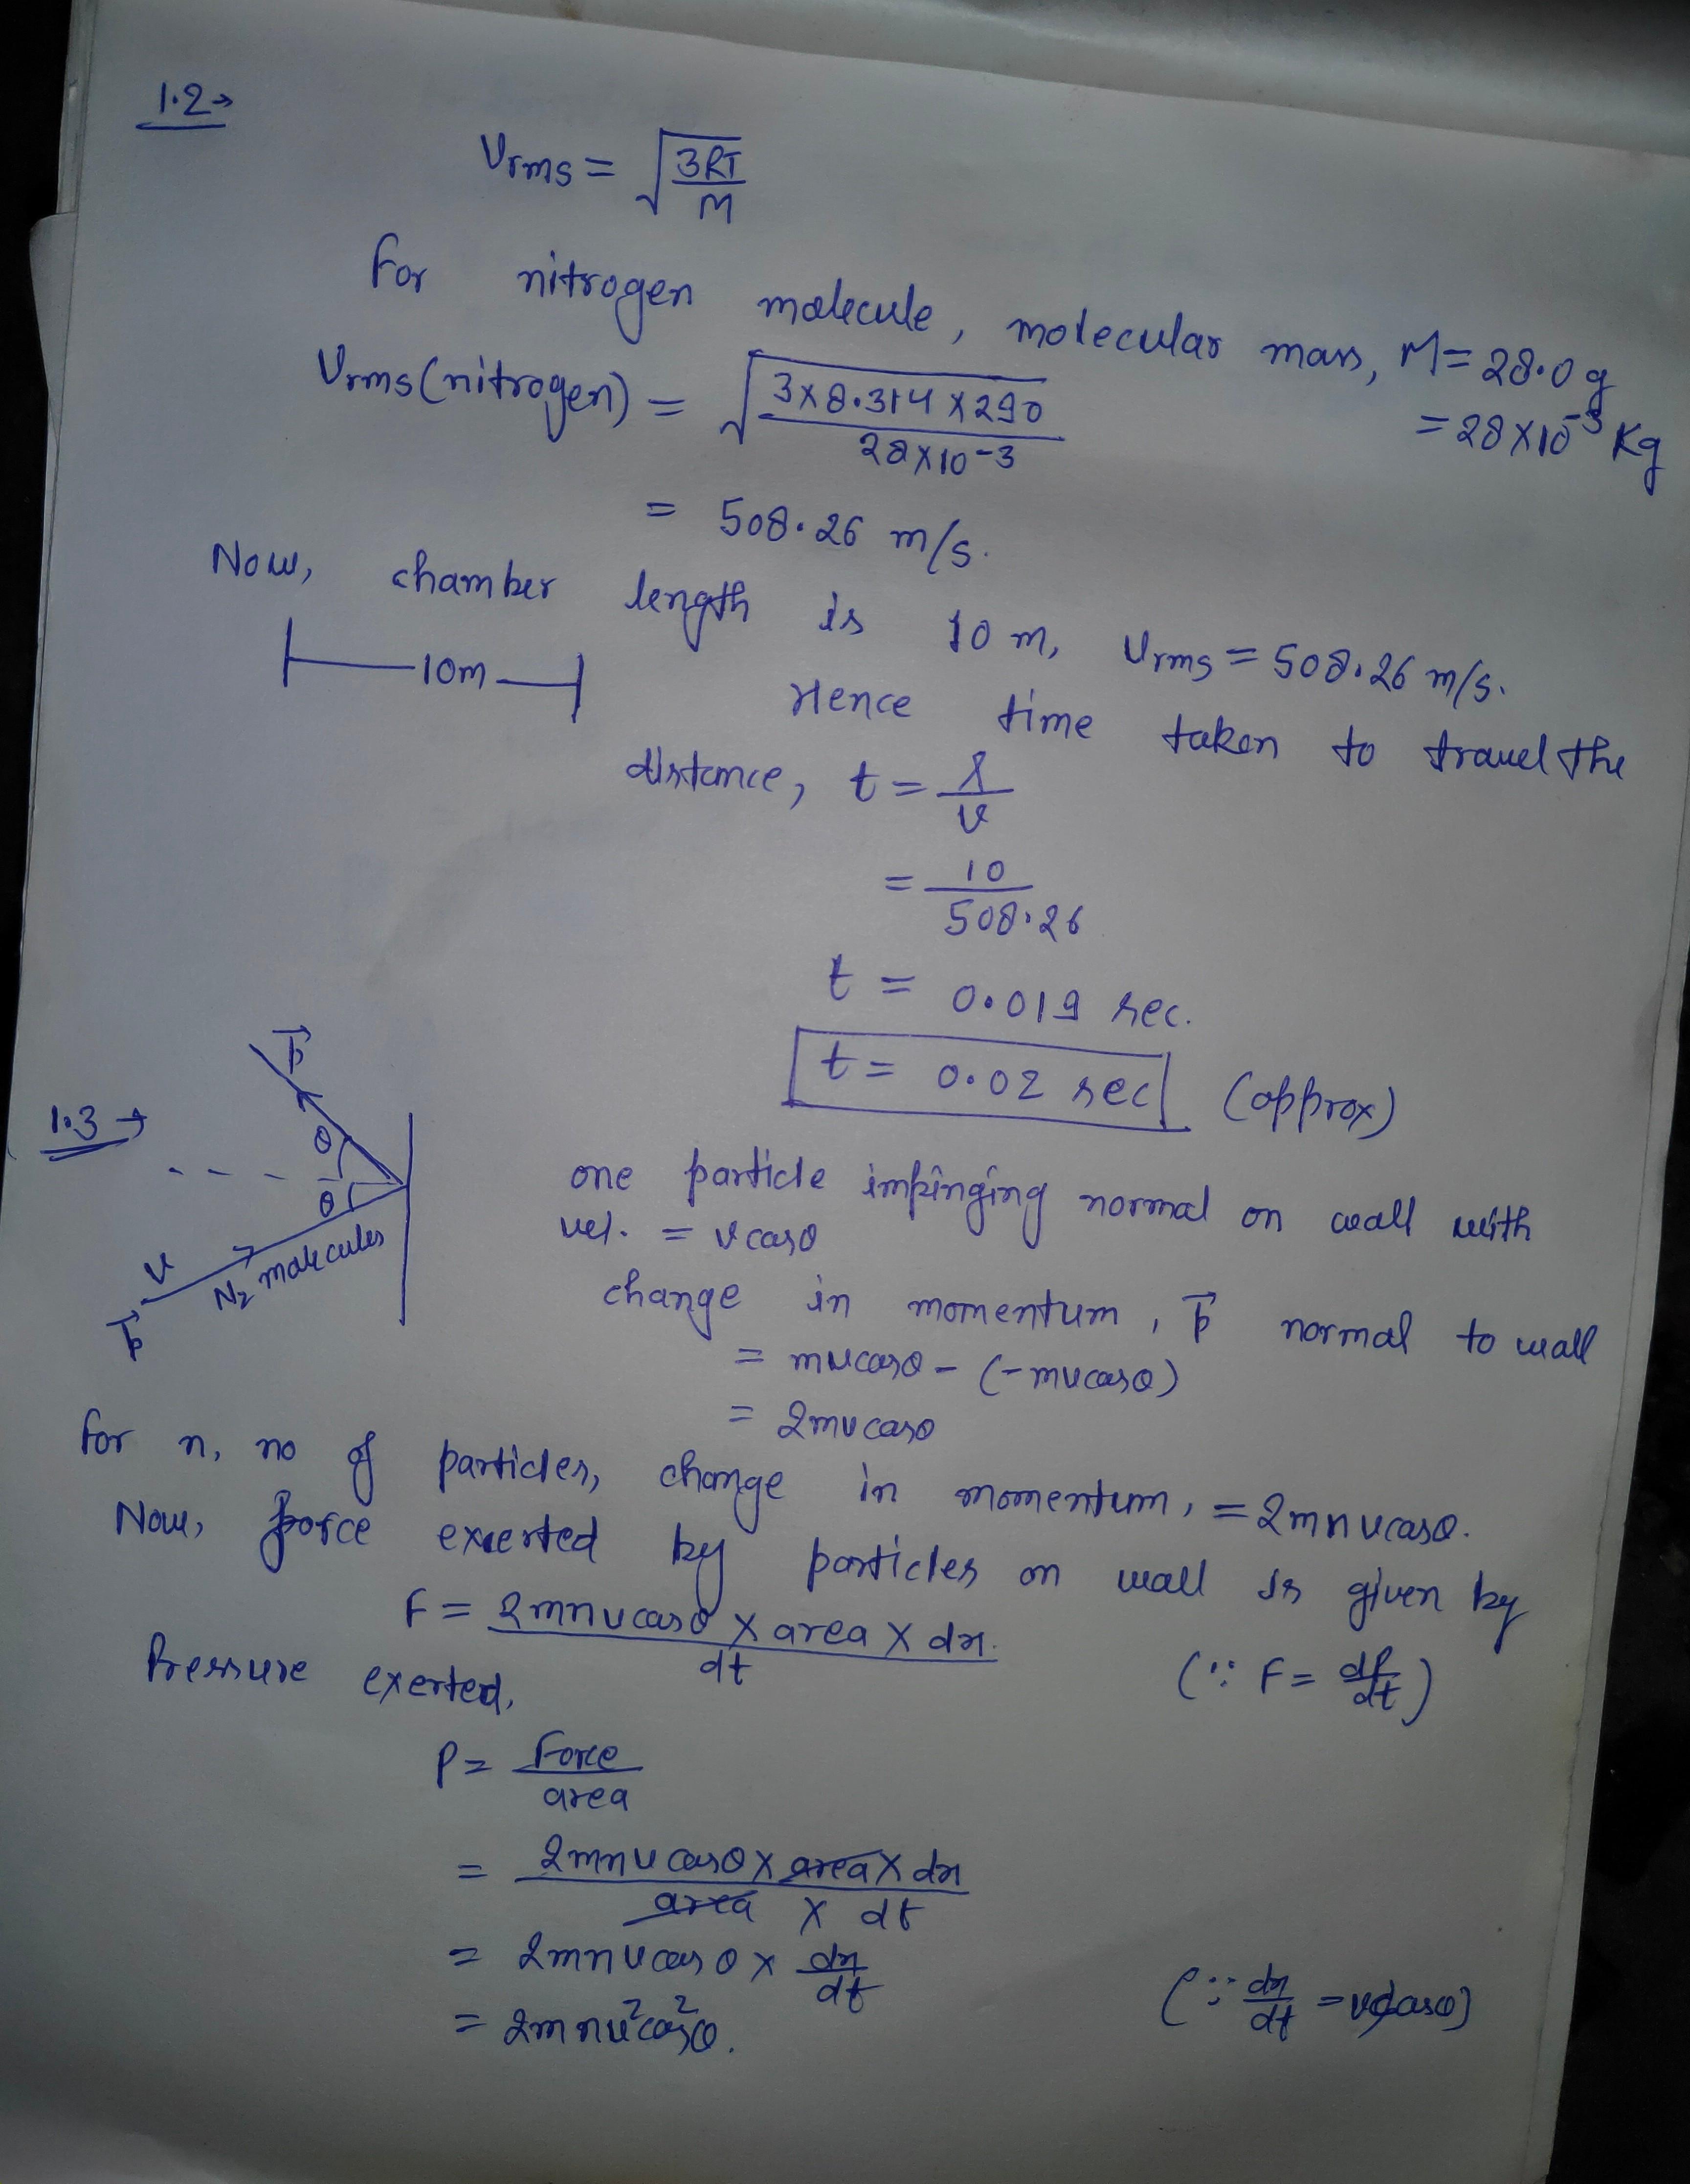 1.2→
Vrms = √(3RT/M)
For nitrogen molecule, molecular mass, M = 28.0 g
= 28×10⁻³ Kg
Vrms(nitrogen) = √(3×8.314×290 / 28×10⁻³)
= 508.26 m/s.
Now, chamber length is 10 m, Vrms = 508.26 m/s.
10m
Hence time taken to travel the
distance, t = l/v
= 10/508.26
t = 0.019 sec.
t = 0.02 sec (approx)
1.3 →
p⃗
θ
θ
v
N₂ molecules
p⃗
one particle impinging normal on wall with
vel. = vcosθ
change in momentum, p⃗ normal to wall
= mvcosθ - (-mvcosθ)
= 2mvcosθ
For n, no of particles, change in momentum, = 2mnvcosθ.
Now, force exerted by particles on wall is given by
F = 2mnvcosθ × area × dx. / dt
(∵ F = dp/dt)
Pressure exerted,
P = Force/area
= 2mnvcosθ × area × dx / area × dt
= 2mnvcosθ × dx/dt
(∵ dx/dt = vcosθ)
= 2mnv²cos²θ.